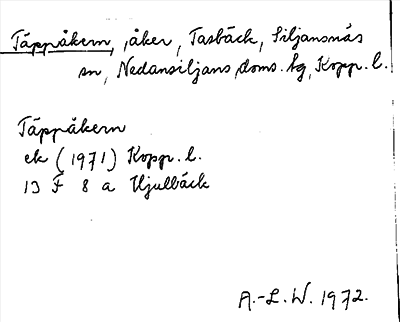 Täppåkern, åker, Tasbäck, Siljansnäs
sn, Nedansiljans doms. tg, Kopp. l.
Täppåkern
ek (1971) Kopp. l.
13 F 8 a Hjulbäck
A.-L. W. 1972.